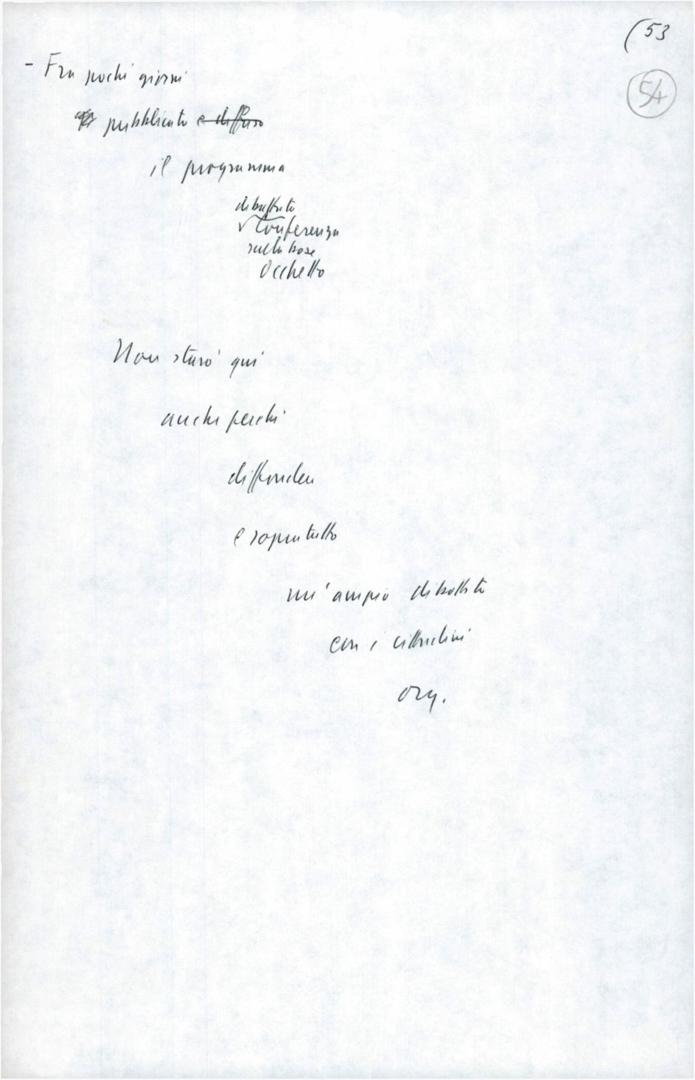 (53
54
- Fra pochi giorni
pubblicato e diffuso
il programma
dibattuto
√ Conferenza
sulla base
Occhetto
Non starò qui
anche perché
diffondere
e soprattutto
un'ampio dibattito
con i cittadini
org.